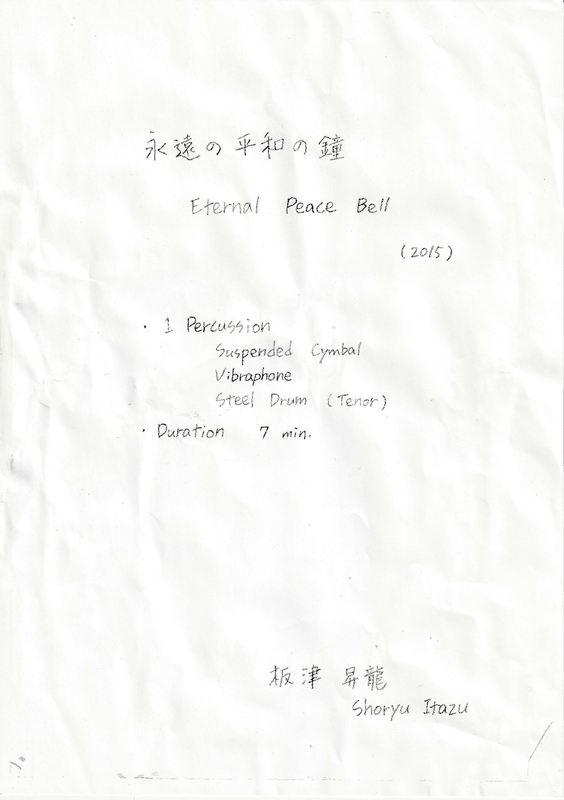 永遠の平和の鐘
Eternal Peace Bell
(2015)
・ 1 Percussion
Suspended Cymbal
Vibraphone
Steel Drum (Tenor)
・ Duration 7 min.
板津 昇龍
Shoryu Itazu